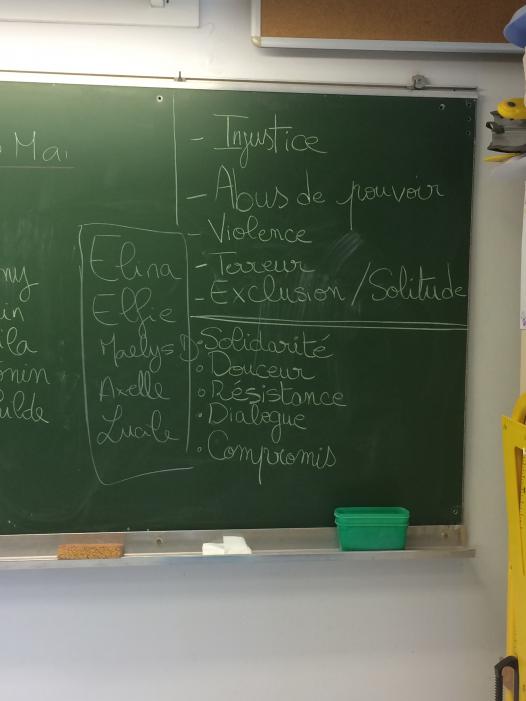 Mai
ny
in
ila
nin
ulde
Elina
Elfie
Maelys D
Axelle
Lucile
- Injustice
- Abus de pouvoir
- Violence
- Terreur
- Exclusion / Solitude
• Solidarité
• Douceur
• Résistance
• Dialogue
• Compromis